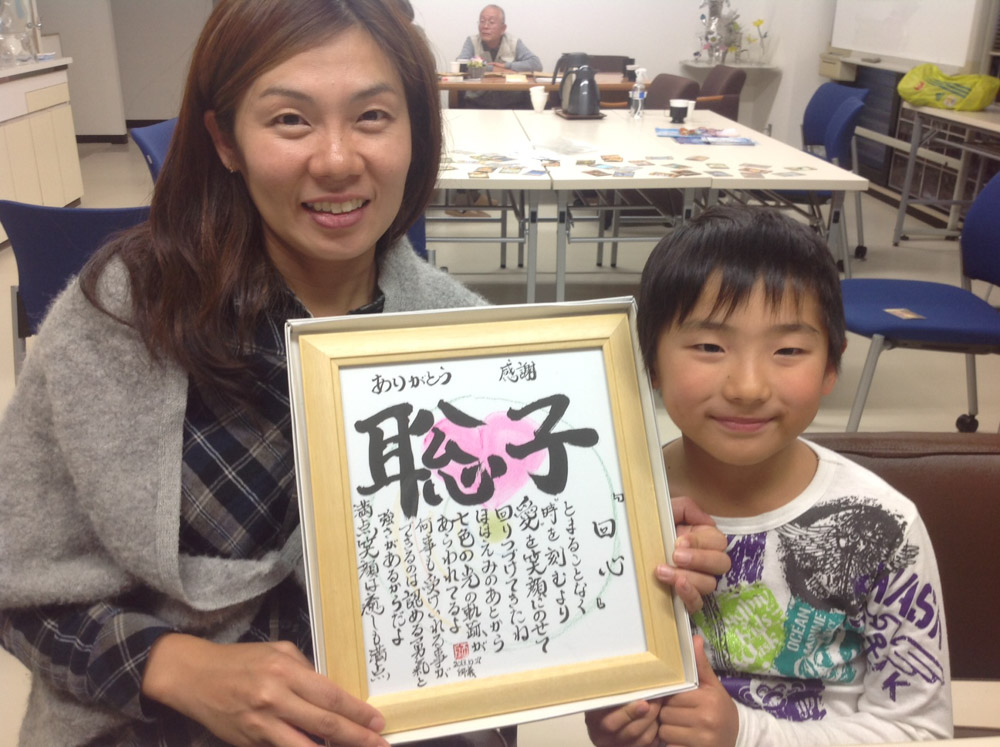 ありがとう 感謝
聡子
『回心』
とまることなく
"時"を刻むより
愛を笑顔にのせて
回りつづけてきたね
ほほえみのあとから
七色の光の軌跡が
あらわれてるよ
何事も受け入れる事が
できるのは認める勇気と
強さがあるからだよ
満点笑顔は癒しも満点
OCEAN
MARINE